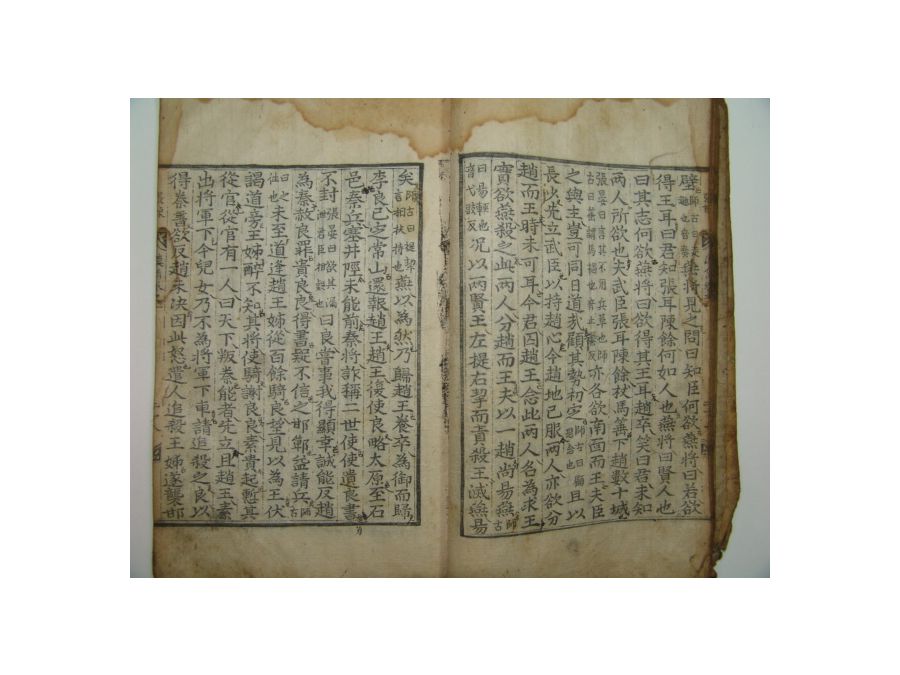 壁師古曰走趣也音奏燕將見之問曰知臣何欲燕將曰若欲
得王耳曰君知張耳陳餘何如人也燕將曰賢人也
曰其志何欲燕將曰欲得其王耳趙卒笑曰君未知
兩人所欲也夫武臣張耳陳餘杖馬箠下趙數十城
張晏曰言不用兵革也師古曰箠謂馬檛也音止蘂反亦各欲南面而王夫臣
之與主豈可同日道哉顧其勢初定師古曰顧思念也且以
長少先立武臣以持趙心今趙地已服兩人亦欲分
趙而王時未可耳今君囚趙王念此兩人名為求王
實欲燕殺之此兩人分趙而王夫以一趙尚易燕師古
曰易輕也音弋豉反況以兩賢王左提右挈而責殺王滅燕易
矣師古曰提挈言相扶持也燕以為然乃歸趙王養卒為御而歸
李良已定常山還報趙王趙王復使良略太原至石
邑秦兵塞井陘未能前秦將詐稱二世使使遺良書
不封張晏曰欲其漏泄君臣相疑也曰良嘗事我得顯幸誠能反趙
為秦赦良罪貴良良得書疑不信之邯鄲益請兵師古
曰之往也未至道逢趙王姊從百餘騎良望見以為王伏
謁道旁王姊醉不知其將使騎謝良良素貴起慙其
從官從官有一人曰天下叛秦能者先立且趙王素
出將軍下今兒女乃不為將軍下車請追殺之良以
得秦書欲反趙未決因此怒遣人追殺王姊遂襲邯